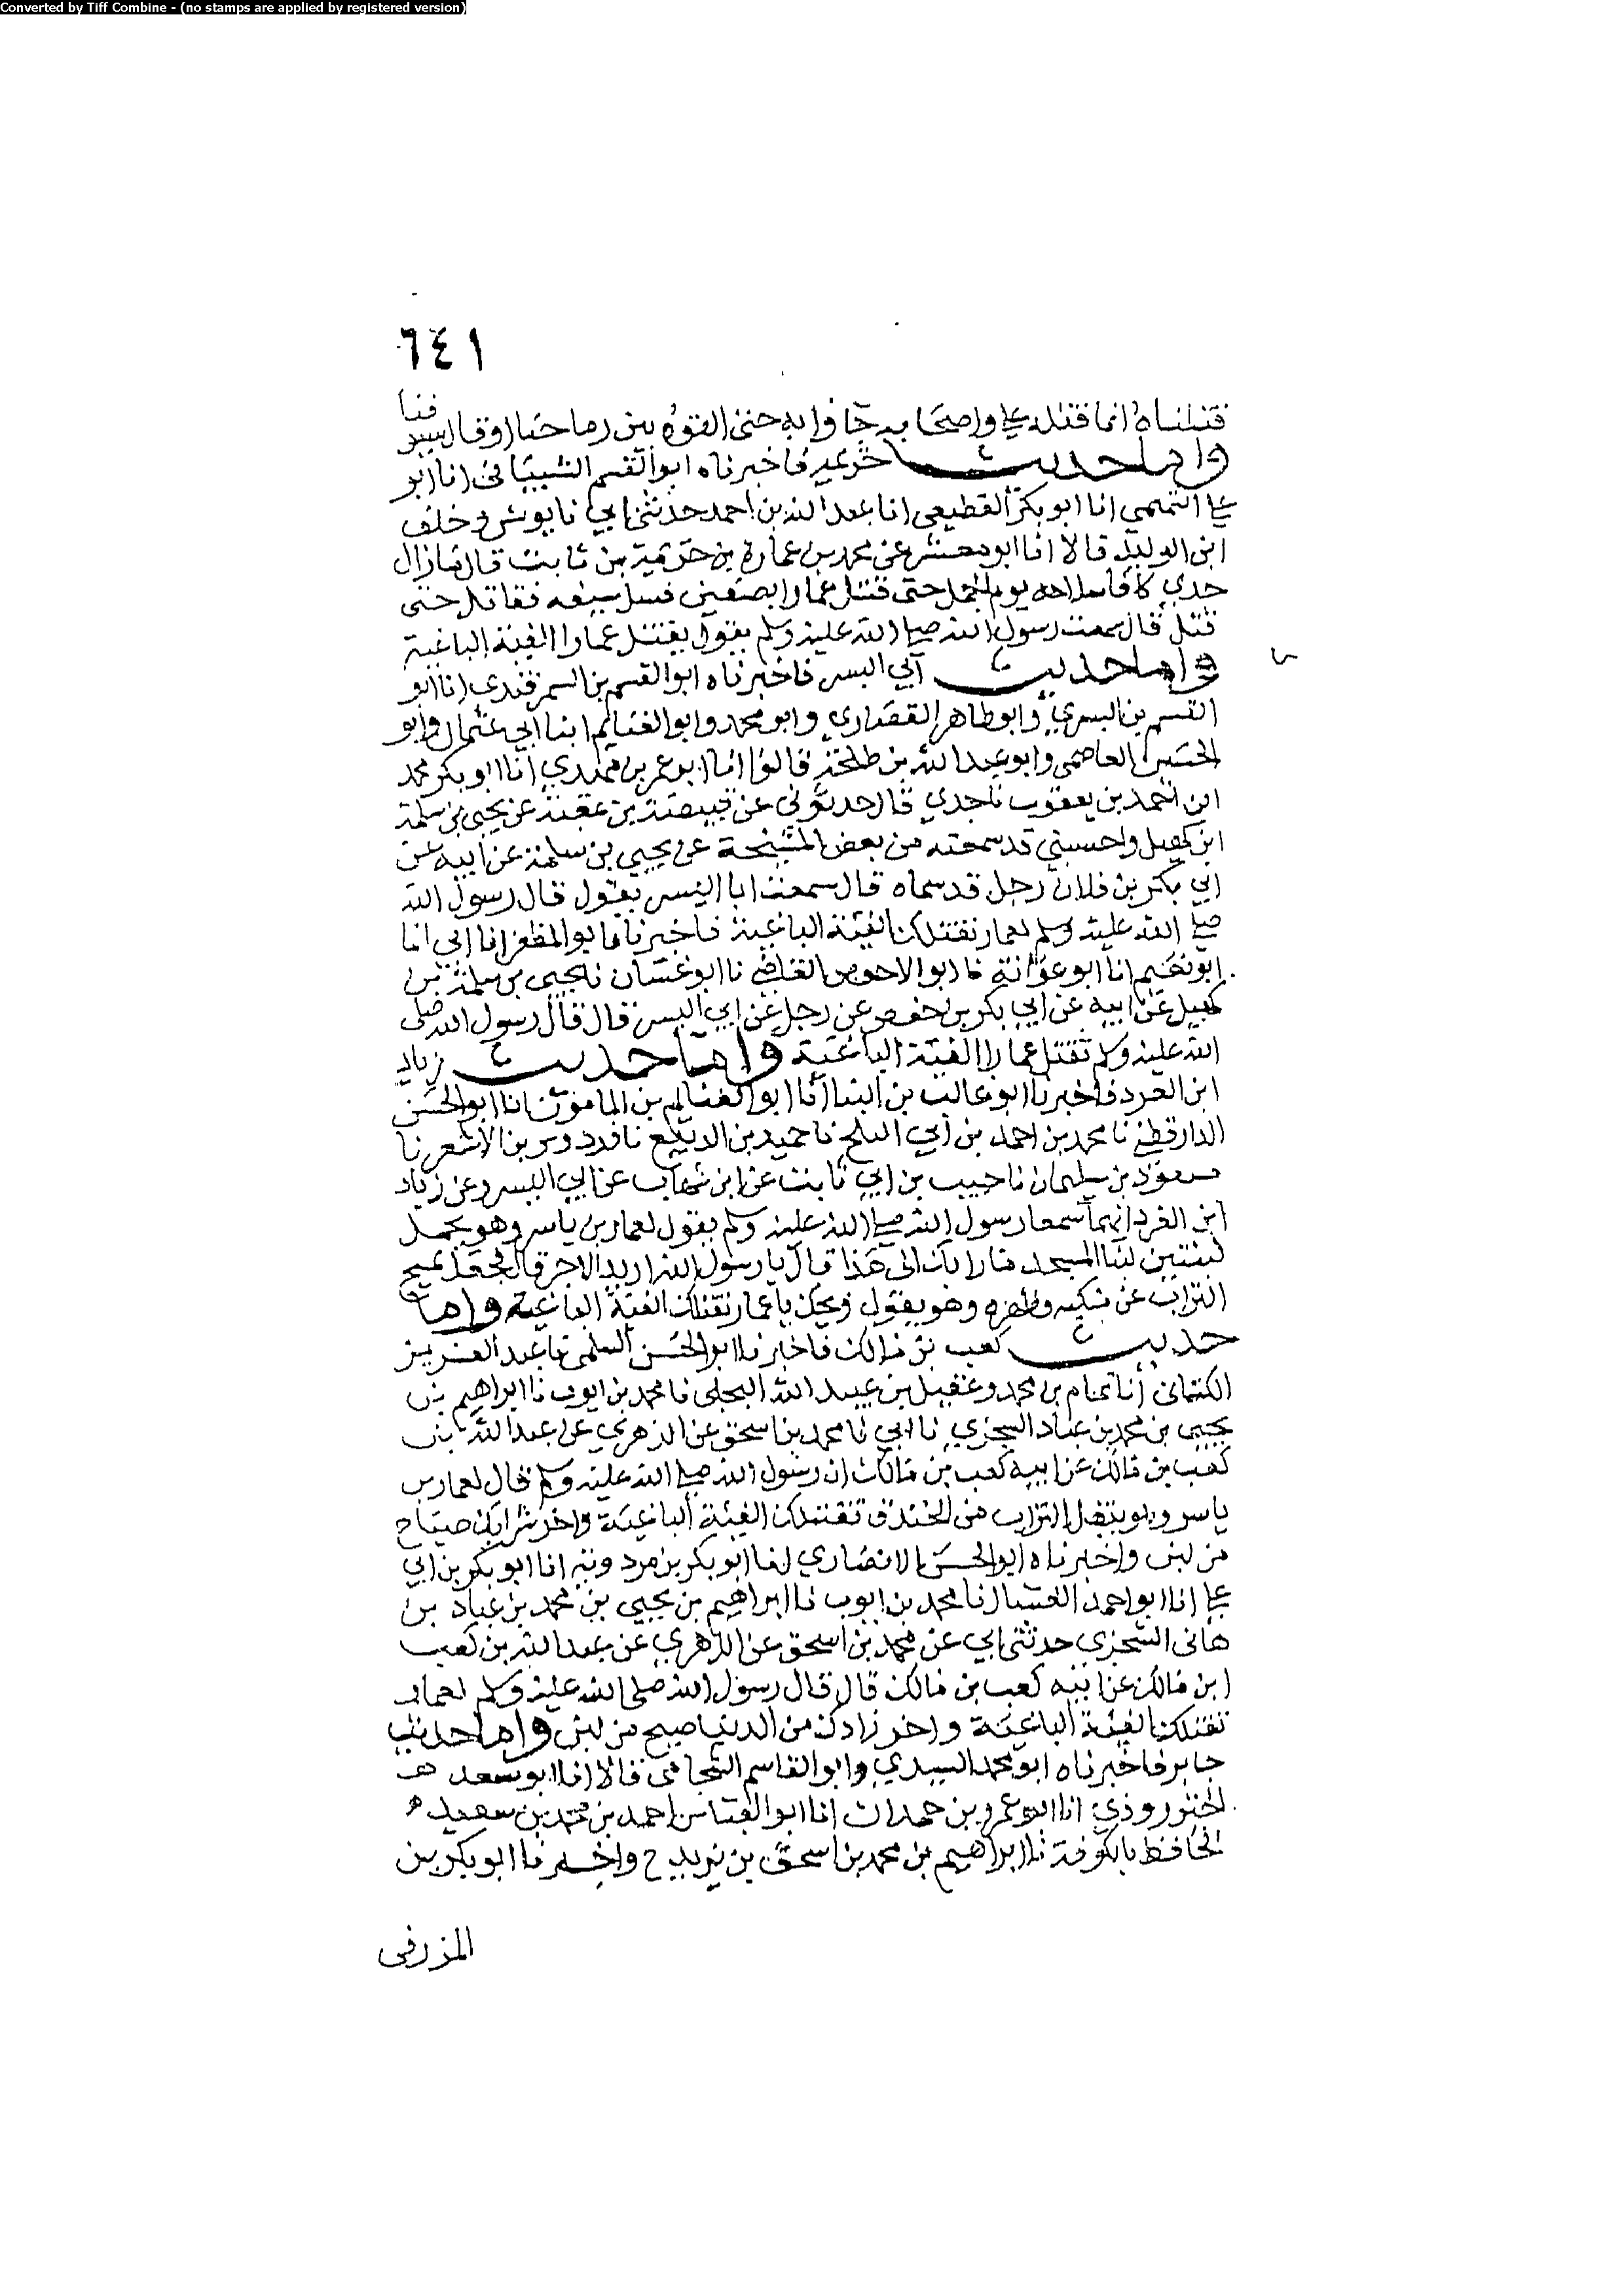 Converted by Tiff Combine - (no stamps are applied by registered version)
٦٤١
قتلناه انما قتله علي واصحابه جاوا به حتى القوه بين رماحنا او قال سيوفنا
واما حديث خزيمة فاخبرناه ابو القسم الشيباني انا ابو
علي التميمي انا ابو بكر القطيعي انا عبد الله بن احمد حدثني ابي نا يونس وخلف
ابن الوليد قالا انا ابو معشر عن محمد بن عمارة بن خزيمة بن ثابت قال مازال
جدي كافا سلاحه يوم الجمل حتى قتل عمار بصفين فسل سيفه فقاتل حتى
قتل قال سمعت رسول الله صلى الله عليه وسلم يقول يقتل عمارا الفئة الباغية
واما حديث ابي اليسر فاخبرناه ابو القسم بن السمرقندي انا ابو
القسم بن البسري وابو طاهر القصاري وابو محمد وابو الغنايم ابنا ابي عثمان وابو
الحسين العاصمي وابو عبد الله بن طلحة قالوا انا ابو عمر بن مهدي انا ابو بكر محمد
ابن احمد بن يعقوب نا جدي قال حدثوني عن قبيصة بن عقبة عن يحيى بن سلمة
ابن كهيل واحسبني قد سمعته من بعض المشيخة عن يحيى بن سلمة عن ابيه عن
ابي بكر بن فلان رجل قد سماه قال سمعت ابا اليسر يقول قال رسول الله
صلى الله عليه وسلم لعمار تقتلك الفئة الباغية فاخبرنا ابو المظفر انا ابي انا
ابو نعيم انا ابو عوانة نا ابو الاحوص القاضي نا ابو غسان نا يحيى بن سلمة بن
كهيل عن ابيه عن ابي بكر بن حفص عن رجل عن ابي اليسر قال قال رسول الله صلى
الله عليه وسلم تقتل عمارا الفئة الباغية واما حديث زياد
ابن الغرد فاخبرنا ابو غالب بن البنا انا ابو الغنايم بن المامون انا ابو الحسن
الدارقطني نا محمد بن احمد بن ابي الثلج نا حميد بن الربيع نا فردوس بن الاشعر نا
مسعود بن سليمان نا حبيب بن ابي ثابت عن ابن شهاب عن ابي اليسر وعن زياد
ابن الغرد انهما سمعا رسول الله صلى الله عليه وسلم يقول لعمار بن ياسر وهو يحمل
لبنتين لبنا المسجد ما رابك الى هذا قال يا رسول الله اريد الاجر قال فجعل يميح
التراب عن منكبيه وظهره وهو يقول ويحك يا عمار تقتلك الفئة الباغية واما
حديث كعب بن مالك فاخبرنا ابو الحسن السلمي نا عبد العزيز
الكتاني انا تمام بن محمد وعقيل بن عبيد الله البجلي نا محمد بن ايوب نا ابراهيم بن
يحيى بن محمد بن عباد السجزي نا ابي نا محمد بن اسحق عن الزهري عن عبد الله بن
كعب بن مالك عن ابيه كعب بن مالك ان رسول الله صلى الله عليه وسلم قال لعمار بن
ياسر وهو ينقل التراب من الخندق تقتلك الفئة الباغية واخر شرابك صياح
من لبن واخبرناه ابو الحسن الانصاري انا ابو بكر بن مردويه انا ابو بكر بن ابي
علي انا ابو احمد العسال نا محمد بن ايوب نا ابراهيم بن يحيى بن محمد بن عباد بن
هانى الشجزي حدثني ابي عن محمد بن اسحق عن الزهري عن عبد الله بن كعب
ابن مالك عن ابيه كعب بن مالك قال قال رسول الله صلى الله عليه وسلم لعمار
تقتلك الفئة الباغية واخر زادك من الدنيا صيح من لبن واما حديث
جابر فاخبرناه ابو محمد السيدي وابو القاسم الشحامي قالا انا ابو سعد
الجنزروذي انا ابو عمرو بن حمدان انا ابو العباس احمد بن محمد بن سعيد
الحافظ بالكوفة نا ابراهيم بن محمد بن اسحق بن يزيد ح واخبرنا ابو بكر بن
المزرفى